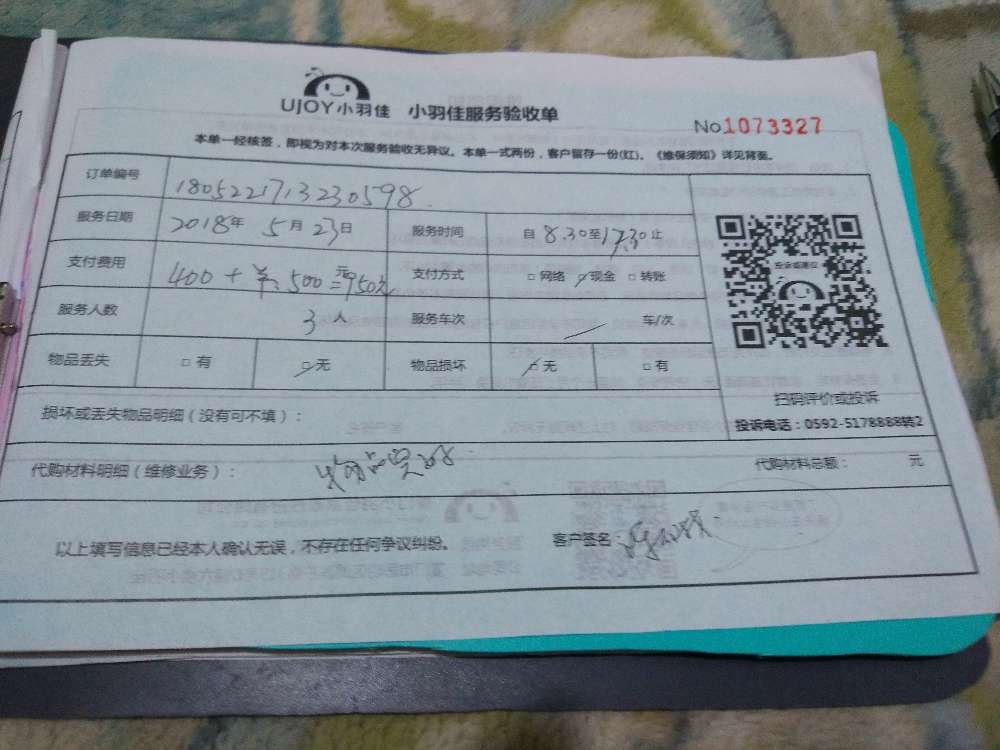 UJOY小羽佳 小羽佳服务验收单
No1073327
本单一经核签，即视为对本次服务验收无异议。本单一式两份，客户留存一份(红)。《维保须知》详见背面。
订单编号 1805221713230598
服务日期 2018年 5月 23日 服务时间 自 8.30至17.30止
支付费用 400 + 500元=950元 支付方式 □ 网络 □ 现金 □ 转账
服务人数 3人 服务车次 车/次
物品丢失 □ 有 □ 无 物品损坏 □ 无 □ 有
投诉或建议
扫码评价或投诉
投诉电话：0592-5178888转2
损坏或丢失物品明细（没有可不填）：
代购材料明细（维修业务）： 物品完好 代购材料总额： 元
以上填写信息已经本人确认无误，不存在任何争议纠纷。 客户签名：